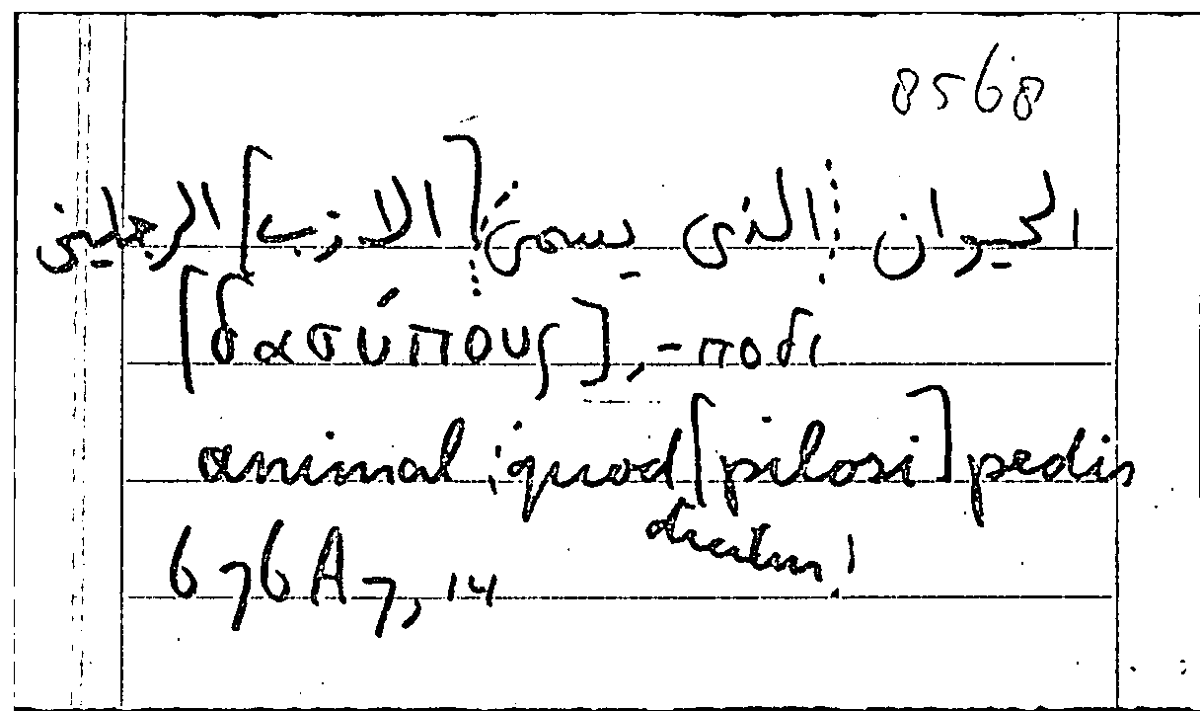 8568
الحيوان الذى يسمى [الازب] الرجلين
[δασύπους], -ποδι
animal quod [pilosi] pedis
dictum
676A7, 14